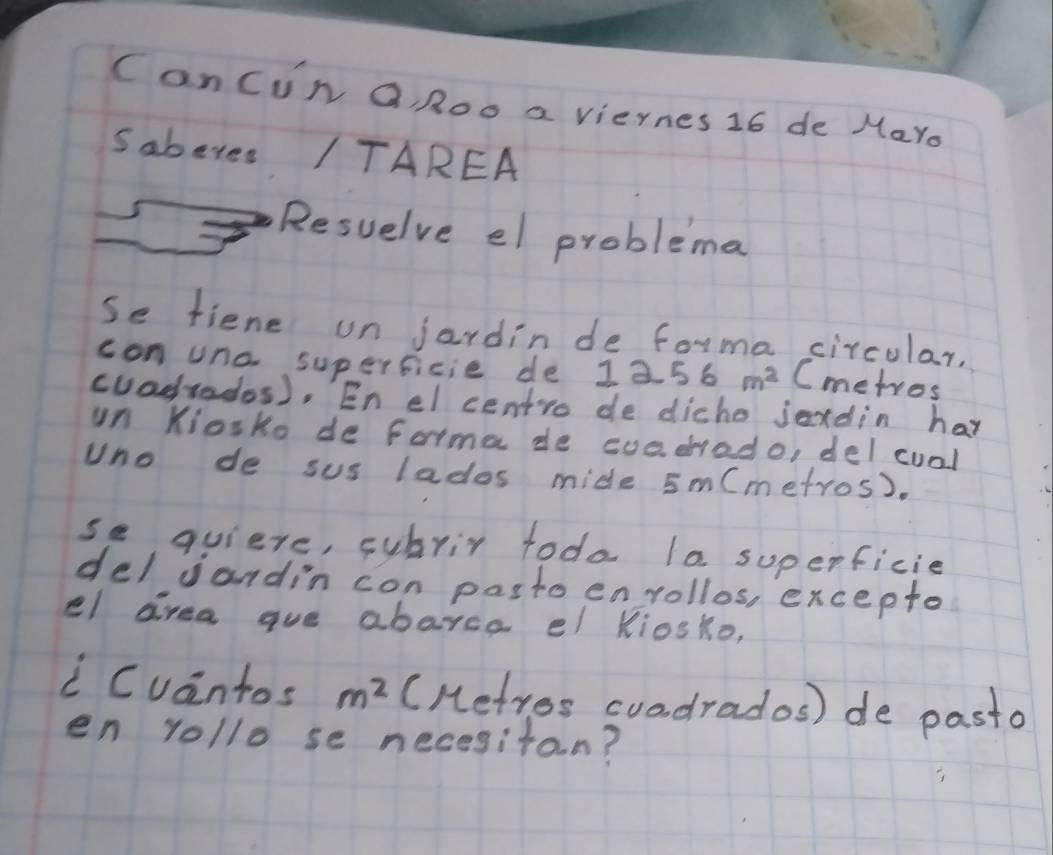 Cancún Q,Roo a viernes 16 de Mayo
Saberes. / TAREA
Resuelve el probléma
se tiene un jardín de forma circular,
con una superficie de 1256 m² (metros
cuadrados). En el centro de dicho jardin hay
un Kiosko de forma de cuadrado, del cual
uno de sus lados mide 5m(metros).
se quiere, cubrir toda la superficie
del jardín con pasto en rollos, excepto
el área que abarca el Kiosko,
¿Cuántos m² (Metros cuadrados) de pasto
en rollo se necesitan?